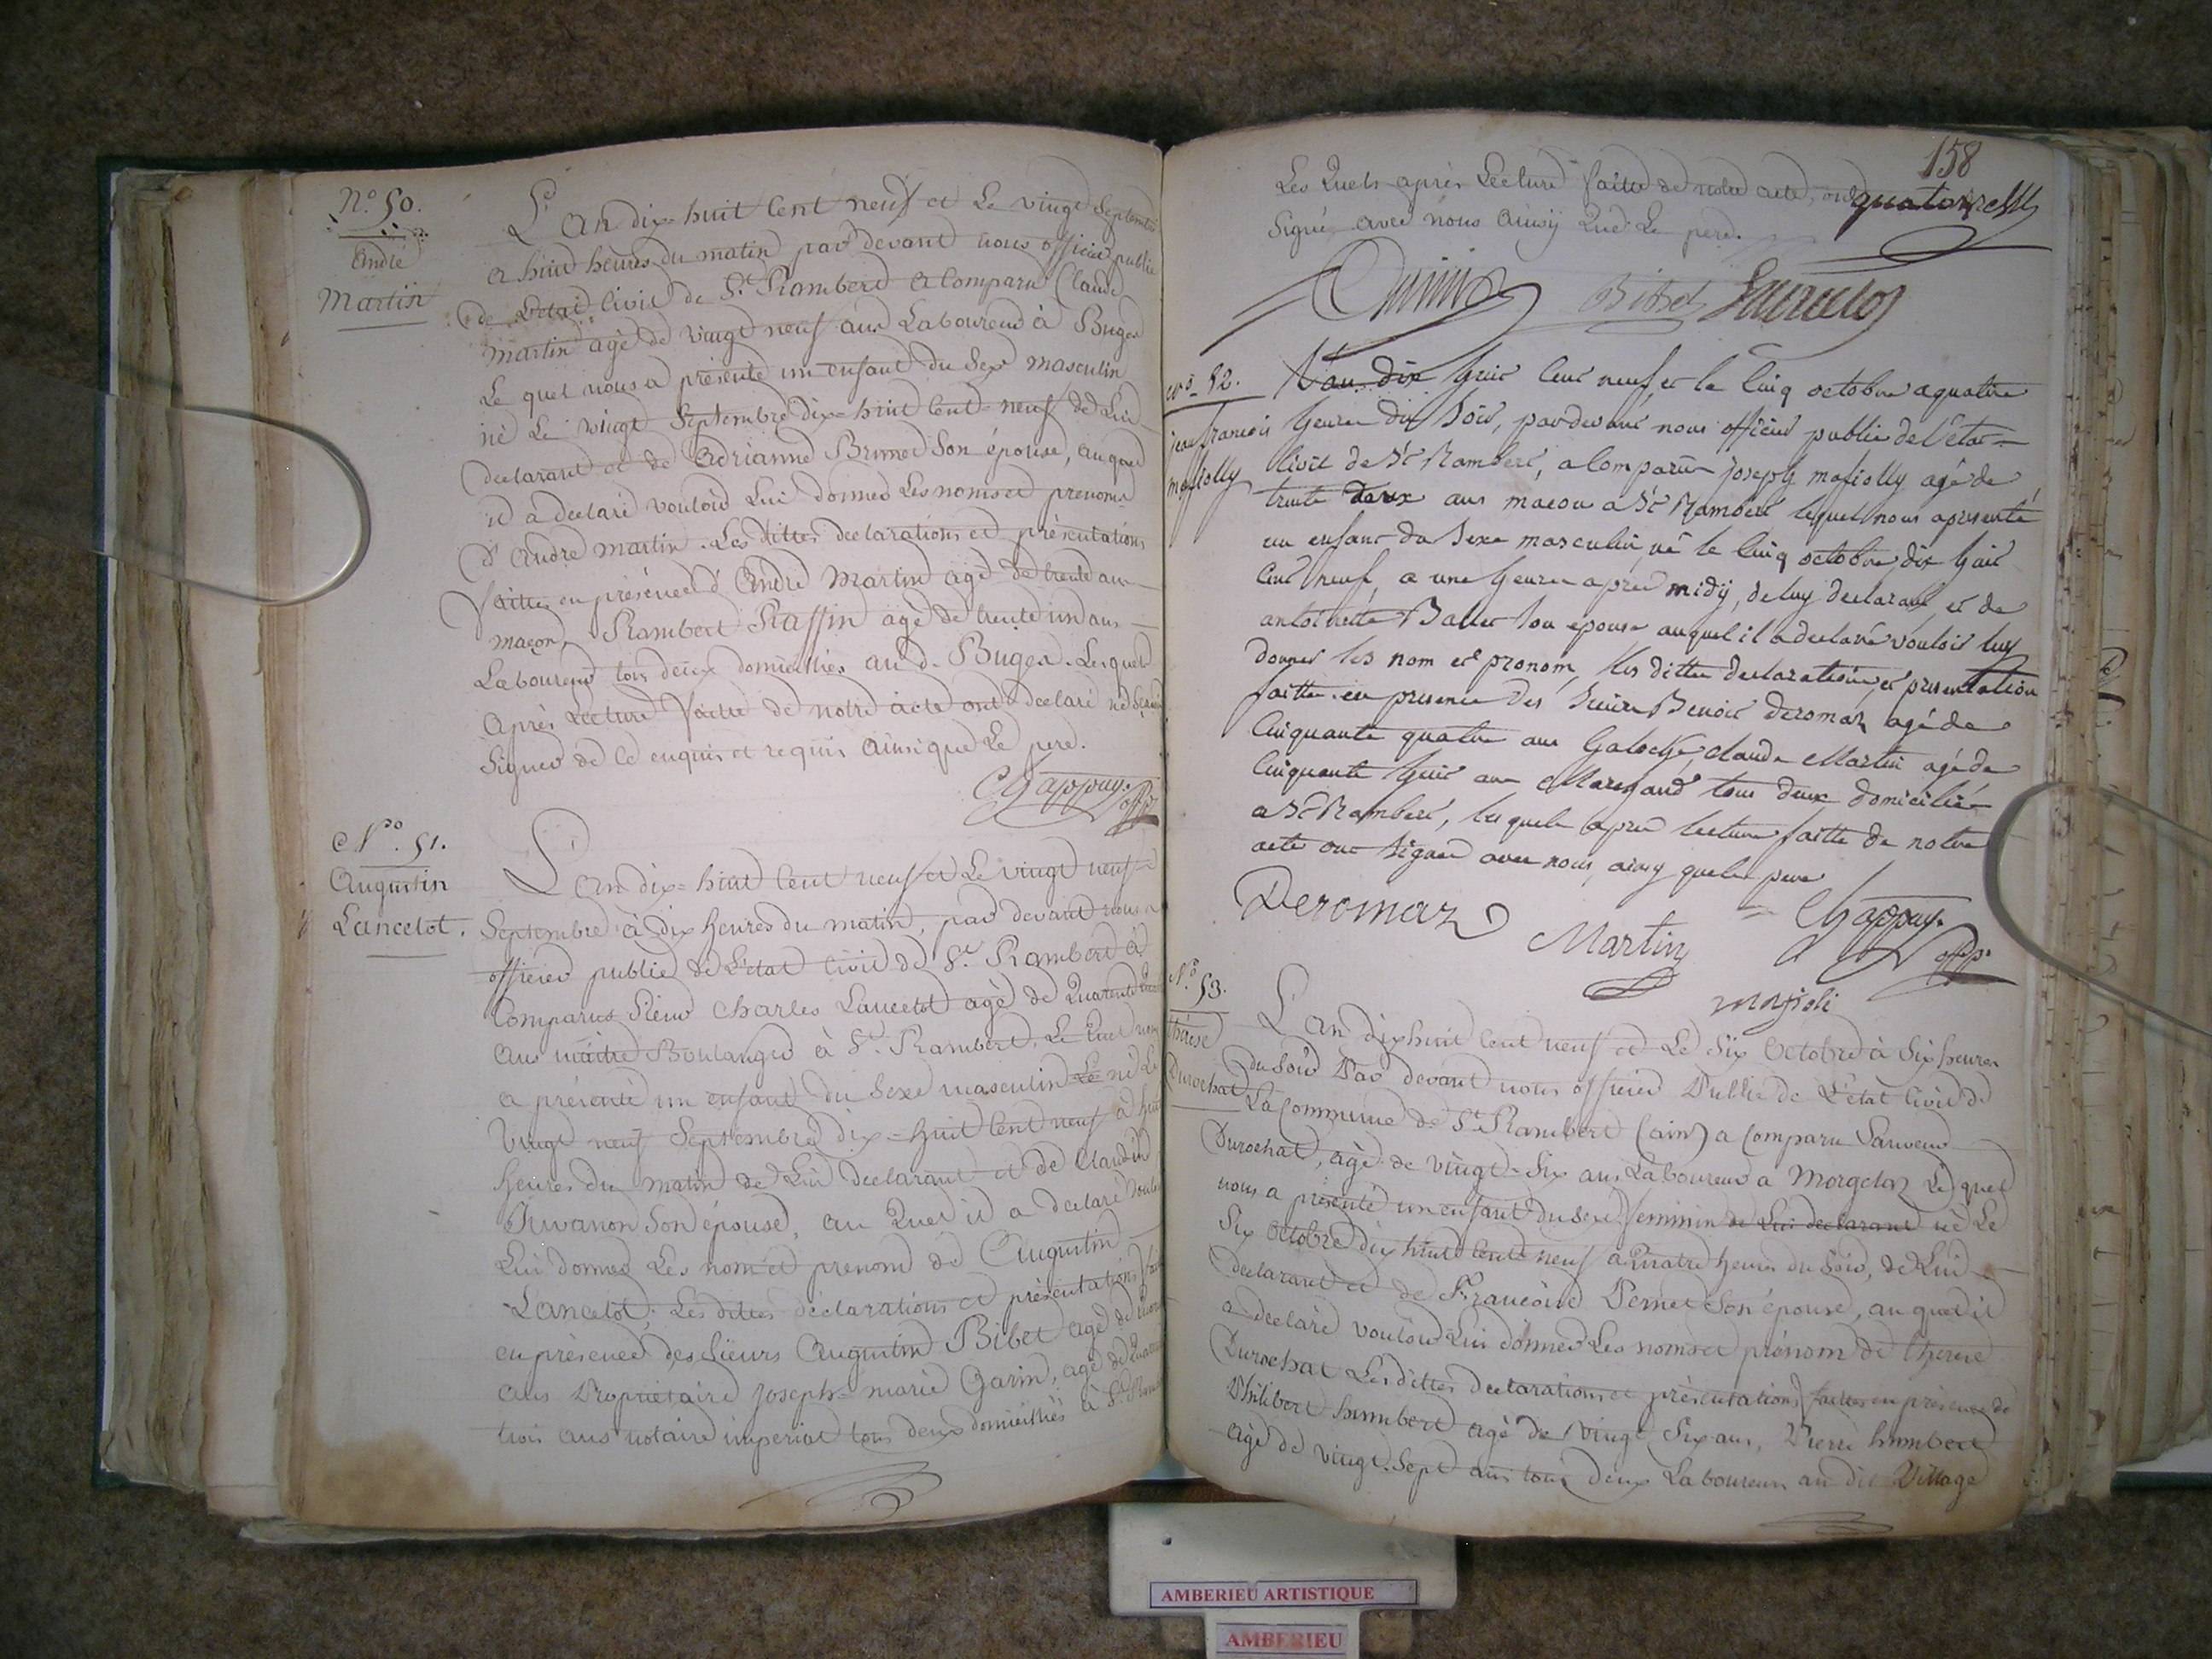 N.o 50.
André
Martin
L'an dix=huit cent neuf et Le vingt Septembre
a huit heures du matin par devant nous officier public
de L'etat civil de St. Rambert a Comparu Claude
martin agé de vingt neuf ans Laboureur à Buges
Le quel nous a présenté un enfant du Sexe masculin
né Le vingt Septembre dix=huit Cent=neuf de Lui
declarant et de Adrianne Brunet Son épouse, auquel
il à declaré vouloir Lui donner Les noms et prenoms
d'andré martin. Les dittes declarations et présentations
faittes en présence d'André Martin agé de trente ans
maçon, Rambert Raffin agé de trente un ans
Laboureur tous deux domiciliés au d. Buges. Lesquels
Après Lecture faitte de notre acte ont declaré ne Scavoir
Signer de Ce enquis et requis ainsi que Le pere.
Chappuy.
offp.
N.o 51.
Augustin
Lancelot.
L'an dix=huit Cent neuf et Le vingt neuf
Septembre à dix heures du matin, par devant nous
officier public de L'etat civil de St. Rambert à
Comparut Sieur Charles Lancelot agé de Quarante
ans maitre Boulanger à St. Rambert. Le Quel nous
a présenté un enfant du Sexe masculin né Le
vingt neuf Septembre dix=huit Cent neuf à huit
heures du matin de Lui declarant et de Claudine
Juvanon Son épouse, au Quel il a declaré vouloir
Lui donner Les nom et prenom de Augustin
Lancelot; Les dittes déclarations et présentations
en présence des Sieurs Augustin Bibet agé de
ans Propriétaire joseph=marie Garin, agé de
trois ans notaire impérial tous deux domiciliés à St.
158
Les Quels après Lecture faitte de notre acte, ont
quatorze
Signé avec nous ainsy Que Le pere.
Bibet Lancelot
no. 52.
jean francois
mafiolly
L'an dix huit cent neuf, et le cinq octobre a quatre
heures du soir, pardevant nous officier public de l'état
civil de St Rambert, a Comparu joseph mafiolly agé de
trente deux ans macon a St Rambert lequel nous a presenté
un enfant du Sexe masculin, né le cinq octobre dix huit
cent neuf, a une heure apres midy, de luy declarant, et de
antoinette Ballet son epouse auquel il a declaré vouloir luy
donner les nom et pronom, les dittes declarations et presentation
faitte en presence des sieurs Benoit Deromas agé de
cinquante quatre ans Claude Martin agé de
cinquante huit ans Marchand tous deux domiciliés
a St Rambert, lesquels apres lecture faitte de notre
acte ont signer avec nous ainsy que le pere
Deromaz Martin Chappuy.
offp.
mafioli
N.o 53.
thérese
Durochat
L'an dix huit cent neuf et Le Six Octobre à Six heures
du Soir Par devant nous officier Public de L'état Civil de
La Commune de St. Rambert (ain) a Comparu Sauveur
Durochat, agé de vingt-Six ans Laboureur a Morgelaz Le quel
nous a présenté un enfant du Sexe féminin de Lui declarant né Le
Six octobre dix huit cent neuf à Quatre heures du Soir, de Lui
declarant et de Françoise Pernet Son épouse, au quel il
a declaré vouloir Lui donner Les noms et prénom de thérese
Durochat Les dittes declarations et présentations faittes en présence de
Philibert humbert agé de vingt Six ans, Pierre humbert
agé de vingt Sept ans tous deux Laboureurs au dit Village
AMBERIEU ARTISTIQUE
AMBERIEU